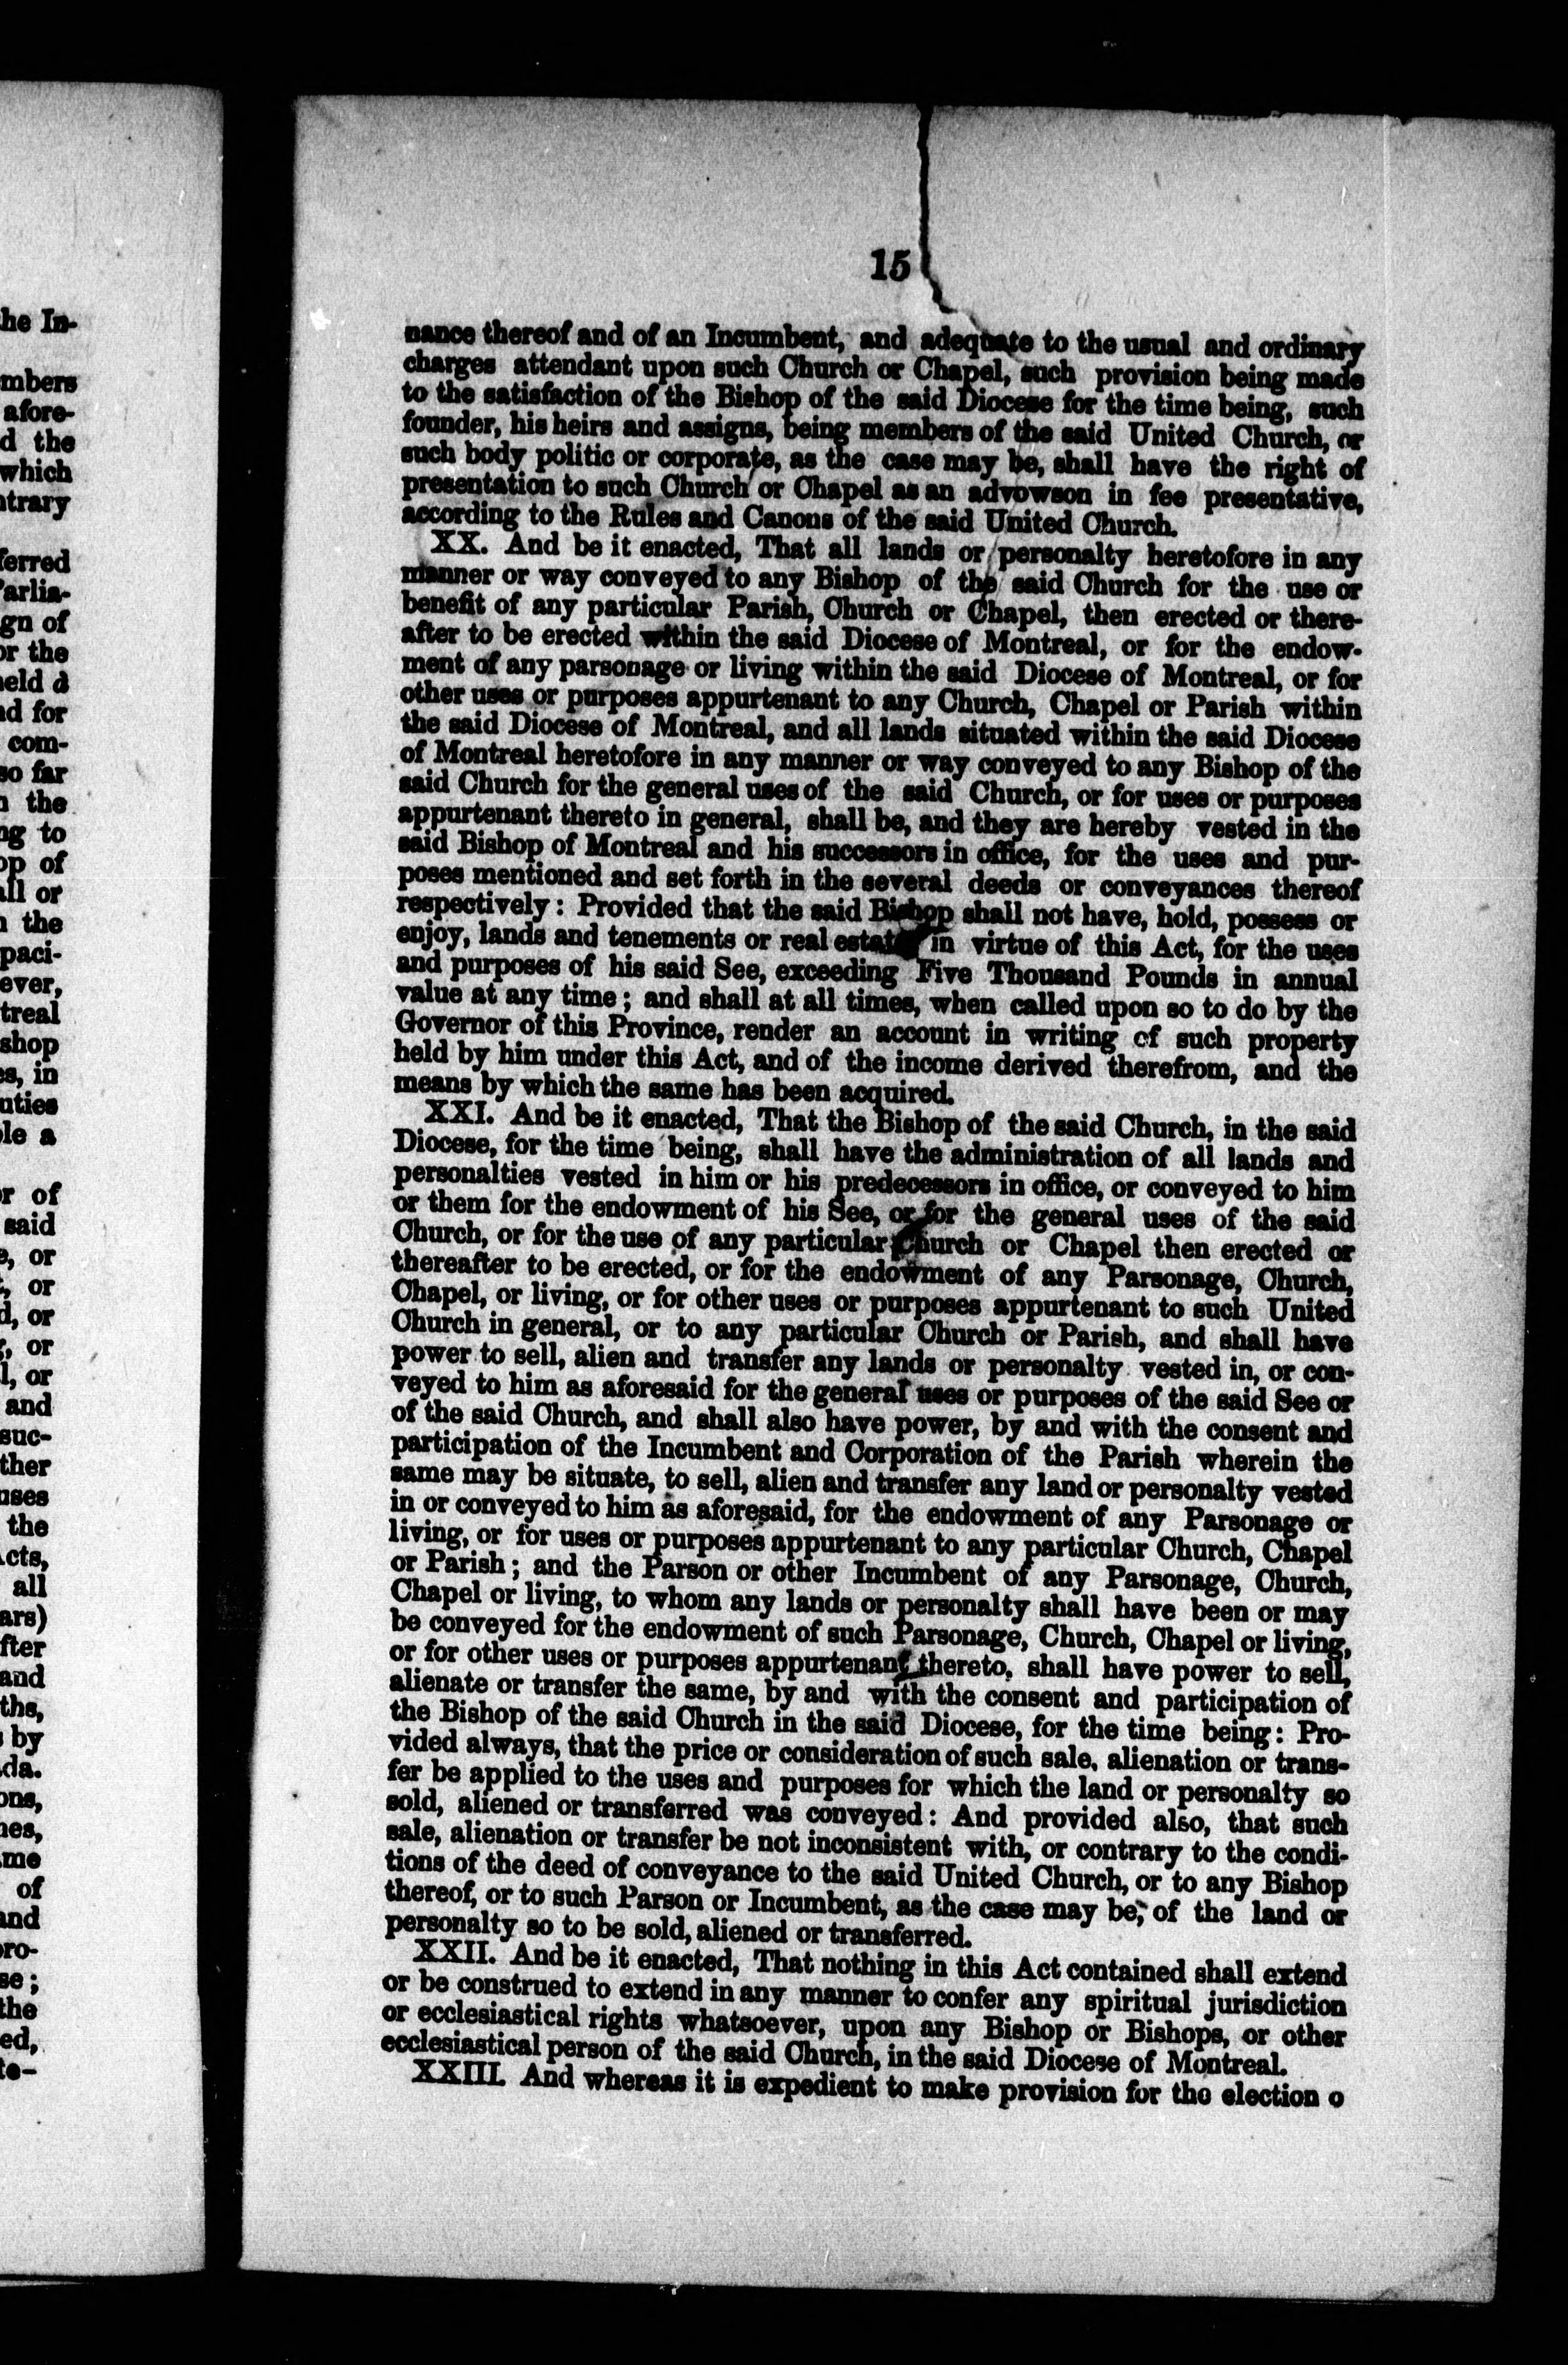 he In-
mbers
afore-
d the
which
ntrary
ferred
Parlia-
gn of
or the
held d
nd for
com-
so far
n the
ng to
op of
all or
n the
paci-
ever,
treal
shop
es, in
uties
ole a
or of
said
e, or
t, or
d, or
g, or
l, or
and
suc-
ther
uses
the
Acts,
all
ars)
fter
and
ths,
by
da.
ons,
nes,
me
of
and
pro-
se;
the
ed,
te-
15
nance thereof and of an Incumbent, and adequate to the usual and ordinary
charges attendant upon such Church or Chapel, such provision being made
to the satisfaction of the Bishop of the said Diocese for the time being, such
founder, his heirs and assigns, being members of the said United Church, or
such body politic or corporate, as the case may be, shall have the right of
presentation to such Church or Chapel as an advowson in fee presentative,
according to the Rules and Canons of the said United Church.
XX. And be it enacted, That all lands or personalty heretofore in any
manner or way conveyed to any Bishop of the said Church for the use or
benefit of any particular Parish, Church or Chapel, then erected or there-
after to be erected within the said Diocese of Montreal, or for the endow-
ment of any parsonage or living within the said Diocese of Montreal, or for
other uses or purposes appurtenant to any Church, Chapel or Parish within
the said Diocese of Montreal, and all lands situated within the said Diocese
of Montreal heretofore in any manner or way conveyed to any Bishop of the
said Church for the general uses of the said Church, or for uses or purposes
appurtenant thereto in general, shall be, and they are hereby vested in the
said Bishop of Montreal and his successors in office, for the uses and pur-
poses mentioned and set forth in the several deeds or conveyances thereof
respectively: Provided that the said Bishop shall not have, hold, possess or
enjoy, lands and tenements or real estate in virtue of this Act, for the uses
and purposes of his said See, exceeding Five Thousand Pounds in annual
value at any time; and shall at all times, when called upon so to do by the
Governor of this Province, render an account in writing of such property
held by him under this Act, and of the income derived therefrom, and the
means by which the same has been acquired.
XXI. And be it enacted, That the Bishop of the said Church, in the said
Diocese, for the time being, shall have the administration of all lands and
personalties vested in him or his predecessors in office, or conveyed to him
or them for the endowment of his See, or for the general uses of the said
Church, or for the use of any particular Church or Chapel then erected or
thereafter to be erected, or for the endowment of any Parsonage, Church,
Chapel, or living, or for other uses or purposes appurtenant to such United
Church in general, or to any particular Church or Parish, and shall have
power to sell, alien and transfer any lands or personalty vested in, or con-
veyed to him as aforesaid for the general uses or purposes of the said See or
of the said Church, and shall also have power, by and with the consent and
participation of the Incumbent and Corporation of the Parish wherein the
same may be situate, to sell, alien and transfer any land or personalty vested
in or conveyed to him as aforesaid, for the endowment of any Parsonage or
living, or for uses or purposes appurtenant to any particular Church, Chapel
or Parish; and the Parson or other Incumbent of any Parsonage, Church,
Chapel or living, to whom any lands or personalty shall have been or may
be conveyed for the endowment of such Parsonage, Church, Chapel or living,
or for other uses or purposes appurtenant thereto, shall have power to sell,
alienate or transfer the same, by and with the consent and participation of
the Bishop of the said Church in the said Diocese, for the time being: Pro-
vided always, that the price or consideration of such sale, alienation or trans-
fer be applied to the uses and purposes for which the land or personalty so
sold, aliened or transferred was conveyed: And provided also, that such
sale, alienation or transfer be not inconsistent with, or contrary to the condi-
tions of the deed of conveyance to the said United Church, or to any Bishop
thereof, or to such Parson or Incumbent, as the case may be, of the land or
personalty so to be sold, aliened or transferred.
XXII. And be it enacted, That nothing in this Act contained shall extend
or be construed to extend in any manner to confer any spiritual jurisdiction
or ecclesiastical rights whatsoever, upon any Bishop or Bishops, or other
ecclesiastical person of the said Church, in the said Diocese of Montreal.
XXIII. And whereas it is expedient to make provision for the election o